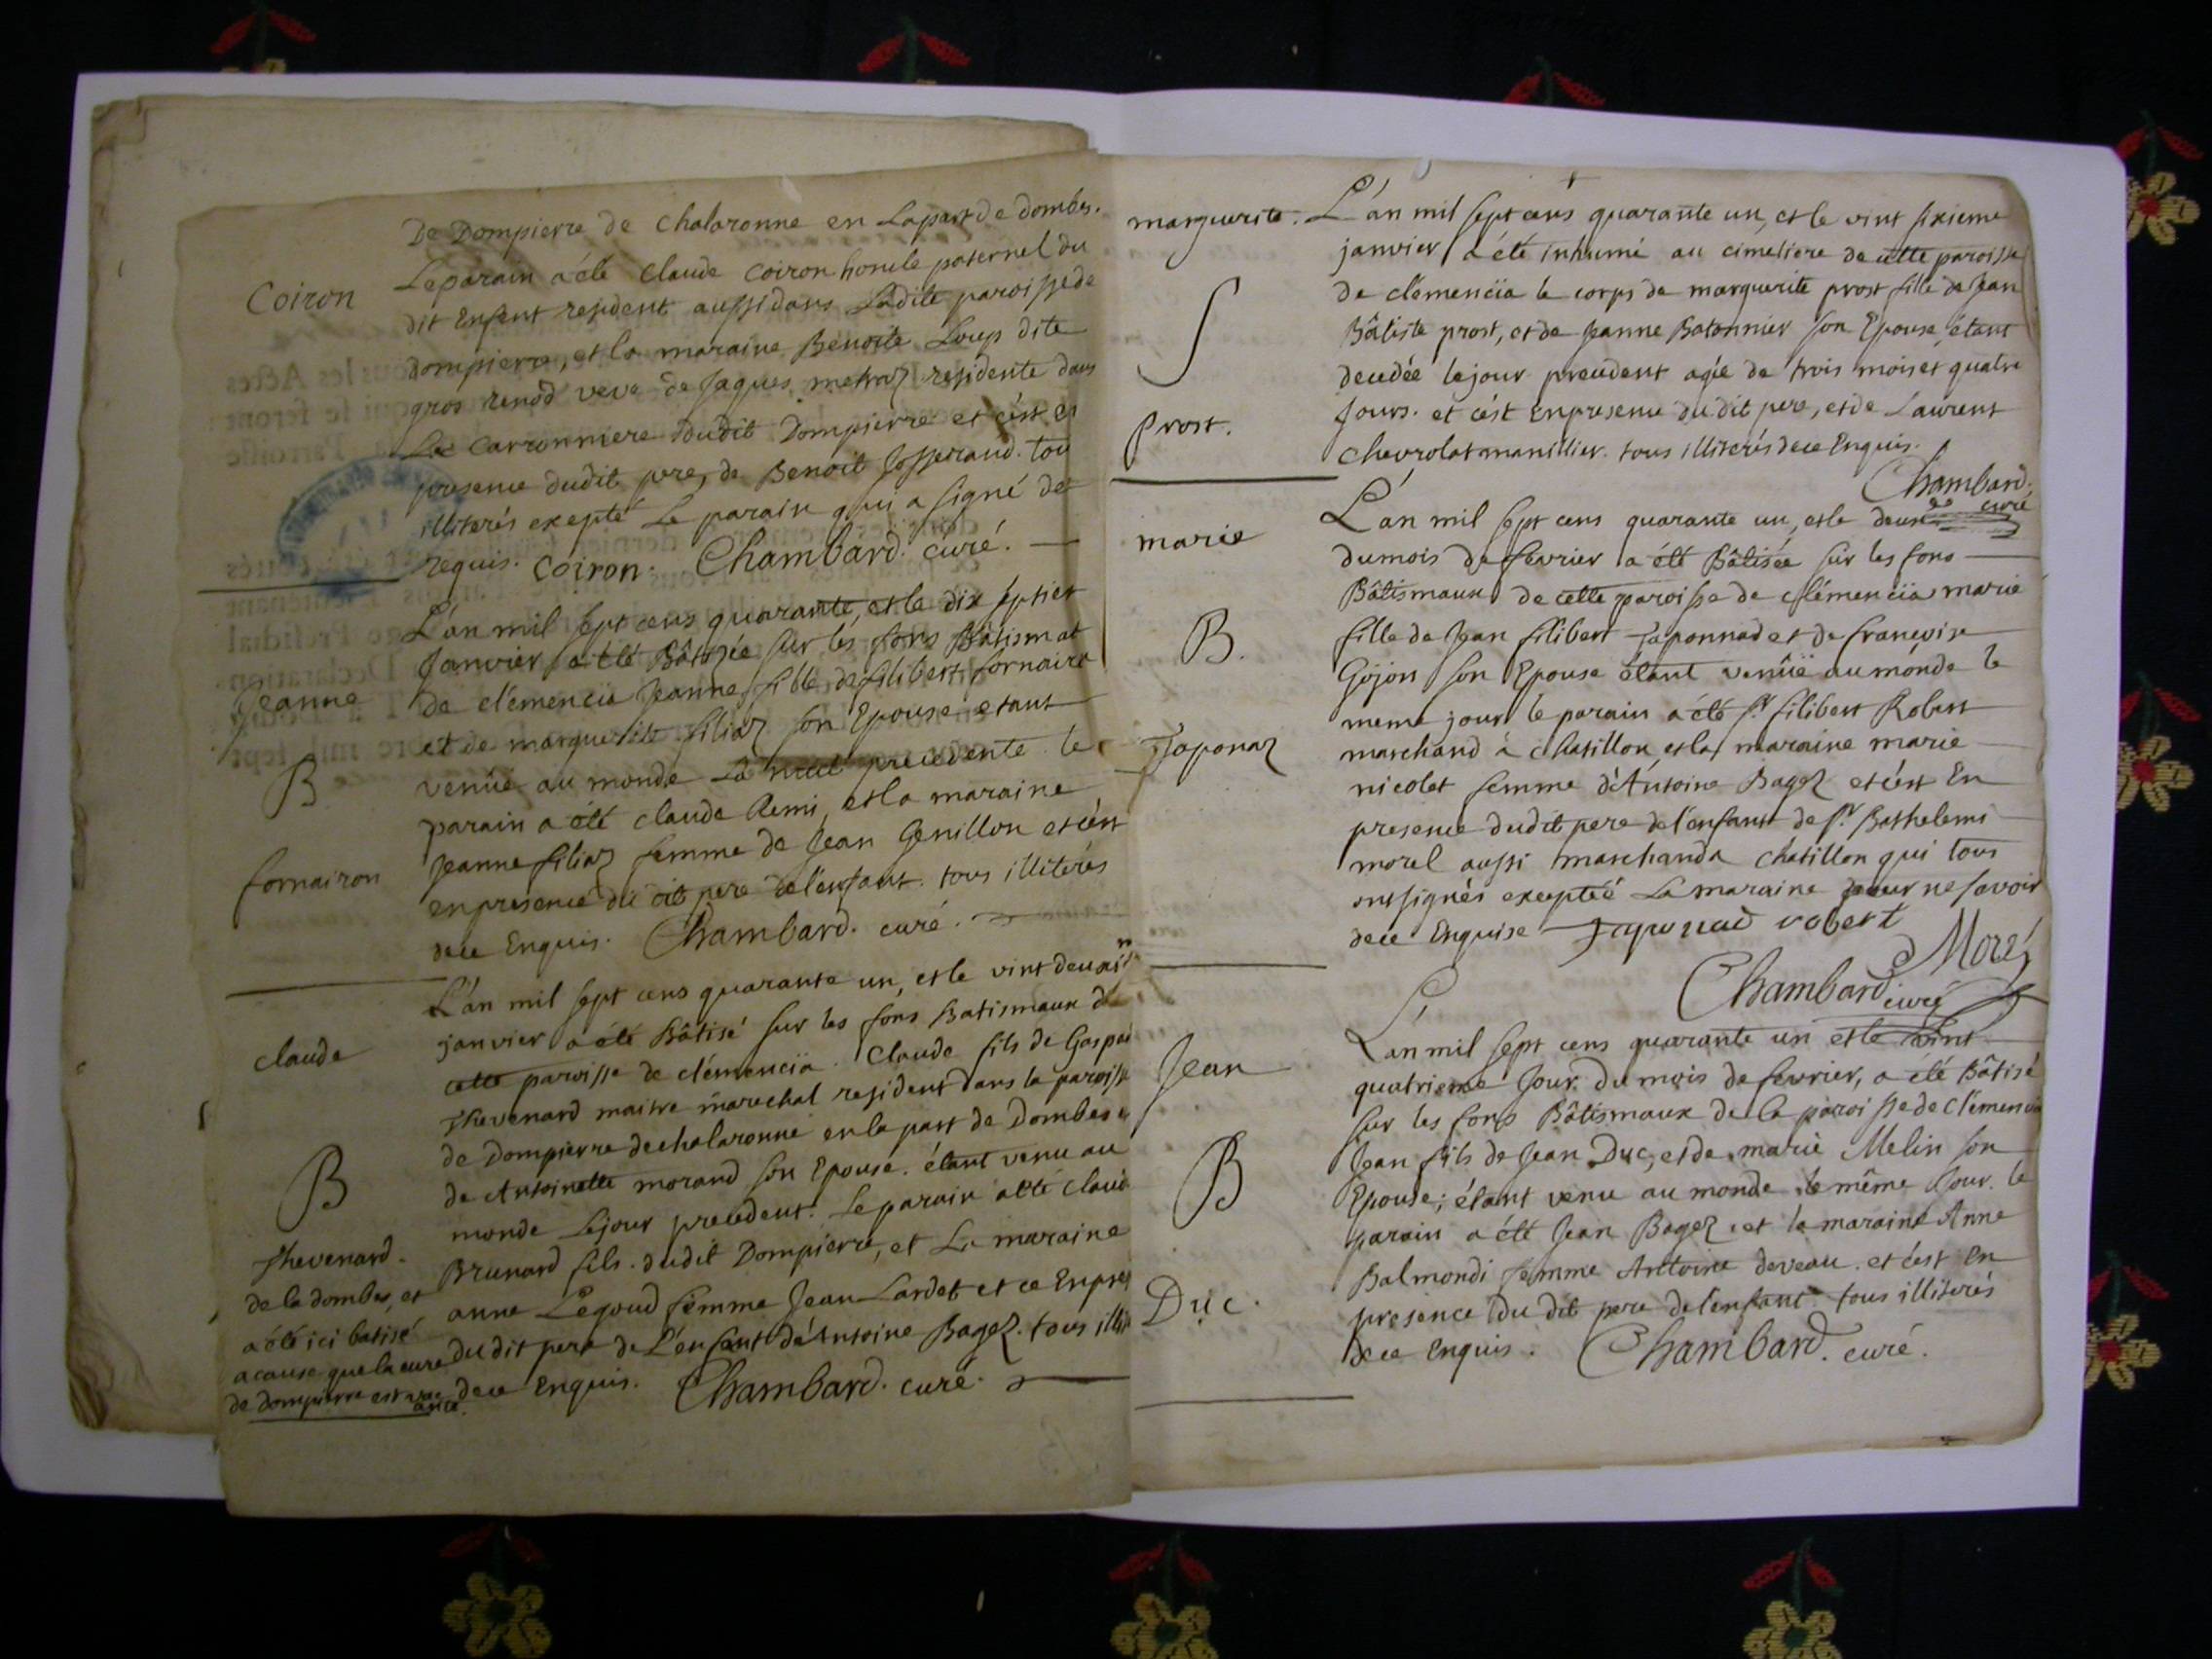 De Dompierre de Chalaronne en La part de dombes.
Coiron
Le parain a été Claude Coiron honcle paternel du
dit Enfent resident aussi dans Ladite paroisse de
dompierre, et la maraine Benoite Loup dite
gros renod veve de Jaques metraz residente dans
La Carronniere dudit Dompierre et c'est en
presence dudit pere, de Benoit Josserand. tou
illiterés exepté Le parain qui a signé de
requis. Coiron. Chambard. curé.
L'an mil sept cens quarante, et le dix septier
Janvier a été Bâtisée sur les fons Bâtismat
Jeanne
de clémencia Jeanne fille de filibert fornairon
et de marguerite filiaz son Epouse etant
B
venüe au monde La nuit precedente le
parain a été claude Remi, et la maraine
fornairon
Jeanne filiaz femme de Jean Genillon et c'est
en presence du dit pere de l'enfant. tous illiterés
de ce Enquis. Chambard. curé.
L'an mil sept cens quarante un, et le vint deuxi
janvier a été Bâtisé sur les fons Batismaux de
claude
cette paroisse de clémencia. Claude fils de Gaspa
Thevenard maitre marechal resident dans la paroisse
de Dompierre de chalaronne en la part de Dombes e
B
de Antoinette morand son Epouse. étant venu au
monde Le jour precedent. Le parain a été Claud
Thevenard.
Brunard fils. dudit Dompierre, et La maraine
de la dombes, et
anne Legoud femme Jean Lardet et ce Enpres
a été ici batisé
du dit pere de L'enfant d'Antoine Bagez. tous illit
a cause que la cure
de ce Enquis. Chambard. curé.
de dompierre est
marguerite.
L'an mil sept cens quarante un, et le vint sixieme
janvier a été inhumé au cimetiere de cette paroisse
de clémencïa le corps de marguerite prost fille de Jean
S
Bâtiste prost, et de Jeanne Batonnier son Epouse, étant
decedée le jour precedent agée de trois mois et quatre
Jours. et c'est Enpresence du dit pere, et de Laurent
Prost.
Chevrolat manillier. tous illiterés de ce Enquis.
Chambard.
curé
L'an mil sept cens quarante un, et le deux
marie
du mois de fevrier a été Bâtisée sur les fons
Bâtismaux de cette paroisse de clémencïa marie
B.
fille de Jean filibert Taponnad et de francoise
Gojon son Epouse étant venüe au monde le
meme jour le parain a été Sr. filibert Robert
Taponaz
marchand à chatillon, et la maraine marie
nicolet femme d'Antoine Bagez et c'est En
presence dudit pere de l'enfant de Sr. Barthelemi
morel aussi marchand a chatillon qui tous
ont signés exeptéé La maraine pour ne savoir
de ce Enquise Taponad robert
Morel
Chambard curé
L'an mil sept cens quarante un et le vint
Jean
quatrieme Jour du mois de fevrier, a été Bâtisé
sur les fons Bâtismaux de la paroisse de clémencia
B
Jean fils de Jean Duc, et de marie Melin son
Epouse; étant venu au monde le même Jour. le
parain a été Jean Bagez, et la maraine Anne
Balmondi femme Antoine deveau. et c'est en
Duc.
presence du dit pere de l'enfant tous illiterés
de ce Enquis. Chambard. curé.